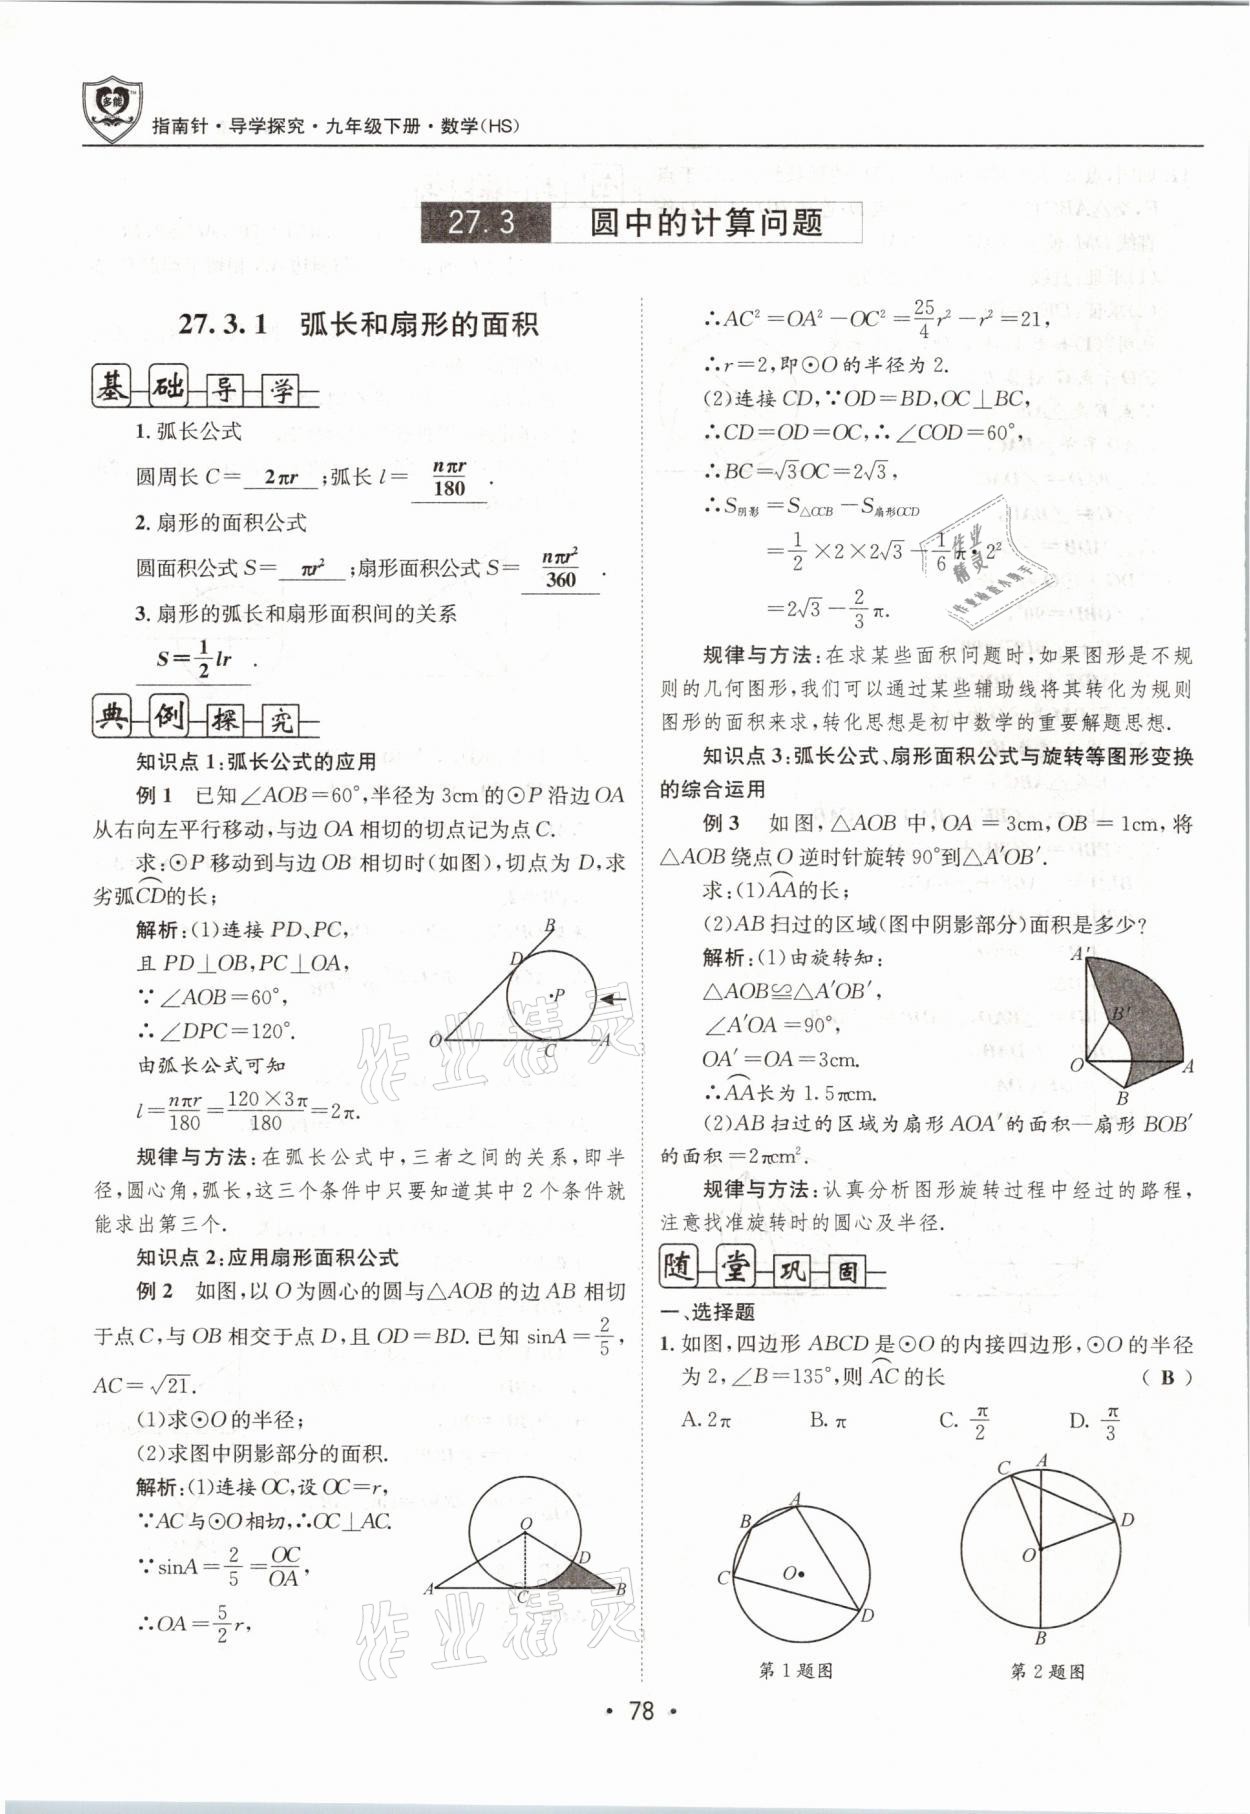 多能
指南针·导学探究·九年级下册·数学(HS)
27.3 圆中的计算问题
27.3.1 弧长和扇形的面积
基础导学
1.弧长公式
圆周长C=2πr;弧长l=nπr/180.
2.扇形的面积公式
圆面积公式S=πr²;扇形面积公式S=nπr²/360.
3.扇形的弧长和扇形面积间的关系
S=1/2lr.
典例探究
知识点1:弧长公式的应用
例1 已知∠AOB=60°,半径为3cm的⊙P沿边OA
从右向左平行移动,与边OA相切的切点记为点C.
求:⊙P移动到与边OB相切时(如图),切点为D,求
劣弧CD的长;
解析:(1)连接PD、PC,
且PD⊥OB,PC⊥OA,
∵∠AOB=60°,
∴∠DPC=120°.
由弧长公式可知
l=nπr/180=120×3π/180=2π.
B
D
P
O
C
A
规律与方法:在弧长公式中,三者之间的关系,即半
径,圆心角,弧长,这三个条件中只要知道其中2个条件就
能求出第三个.
知识点2:应用扇形面积公式
例2 如图,以O为圆心的圆与△AOB的边AB相切
于点C,与OB相交于点D,且OD=BD.已知sinA=2/5,
AC=√21.
(1)求⊙O的半径;
(2)求图中阴影部分的面积.
解析:(1)连接OC,设OC=r,
∵AC与⊙O相切,∴OC⊥AC.
∵sinA=2/5=OC/OA,
∴OA=5/2r,
O
D
A
C
B
∴AC²=OA²-OC²=25/4r²-r²=21,
∴r=2,即⊙O的半径为2.
(2)连接CD,∵OD=BD,OC⊥BC,
∴CD=OD=OC,∴∠COD=60°,
∴BC=√3OC=2√3,
∴S阴影=S△OCB-S扇形OCD
=1/2×2×2√3-1/6π·2²
=2√3-2/3π.
规律与方法:在求某些面积问题时,如果图形是不规
则的几何图形,我们可以通过某些辅助线将其转化为规则
图形的面积来求,转化思想是初中数学的重要解题思想.
知识点3:弧长公式、扇形面积公式与旋转等图形变换
的综合运用
例3 如图,△AOB中,OA=3cm,OB=1cm,将
△AOB绕点O逆时针旋转90°到△A′OB′.
求:(1)AA的长;
(2)AB扫过的区域(图中阴影部分)面积是多少?
解析:(1)由旋转知:
△AOB≌△A′OB′,
∠A′OA=90°,
OA′=OA=3cm.
∴AA长为1.5πcm.
A′
B′
O
A
B
(2)AB扫过的区域为扇形AOA′的面积—扇形BOB′
的面积=2πcm².
规律与方法:认真分析图形旋转过程中经过的路程,
注意找准旋转时的圆心及半径.
随堂巩固
一、选择题
1.如图,四边形ABCD是⊙O的内接四边形,⊙O的半径
为2,∠B=135°,则AC的长 (B)
A.2π B.π C.π/2 D.π/3
A
B
C
O
D
第1题图
C
A
D
O
B
第2题图
·78·
作业精灵
作业精灵
作业精灵